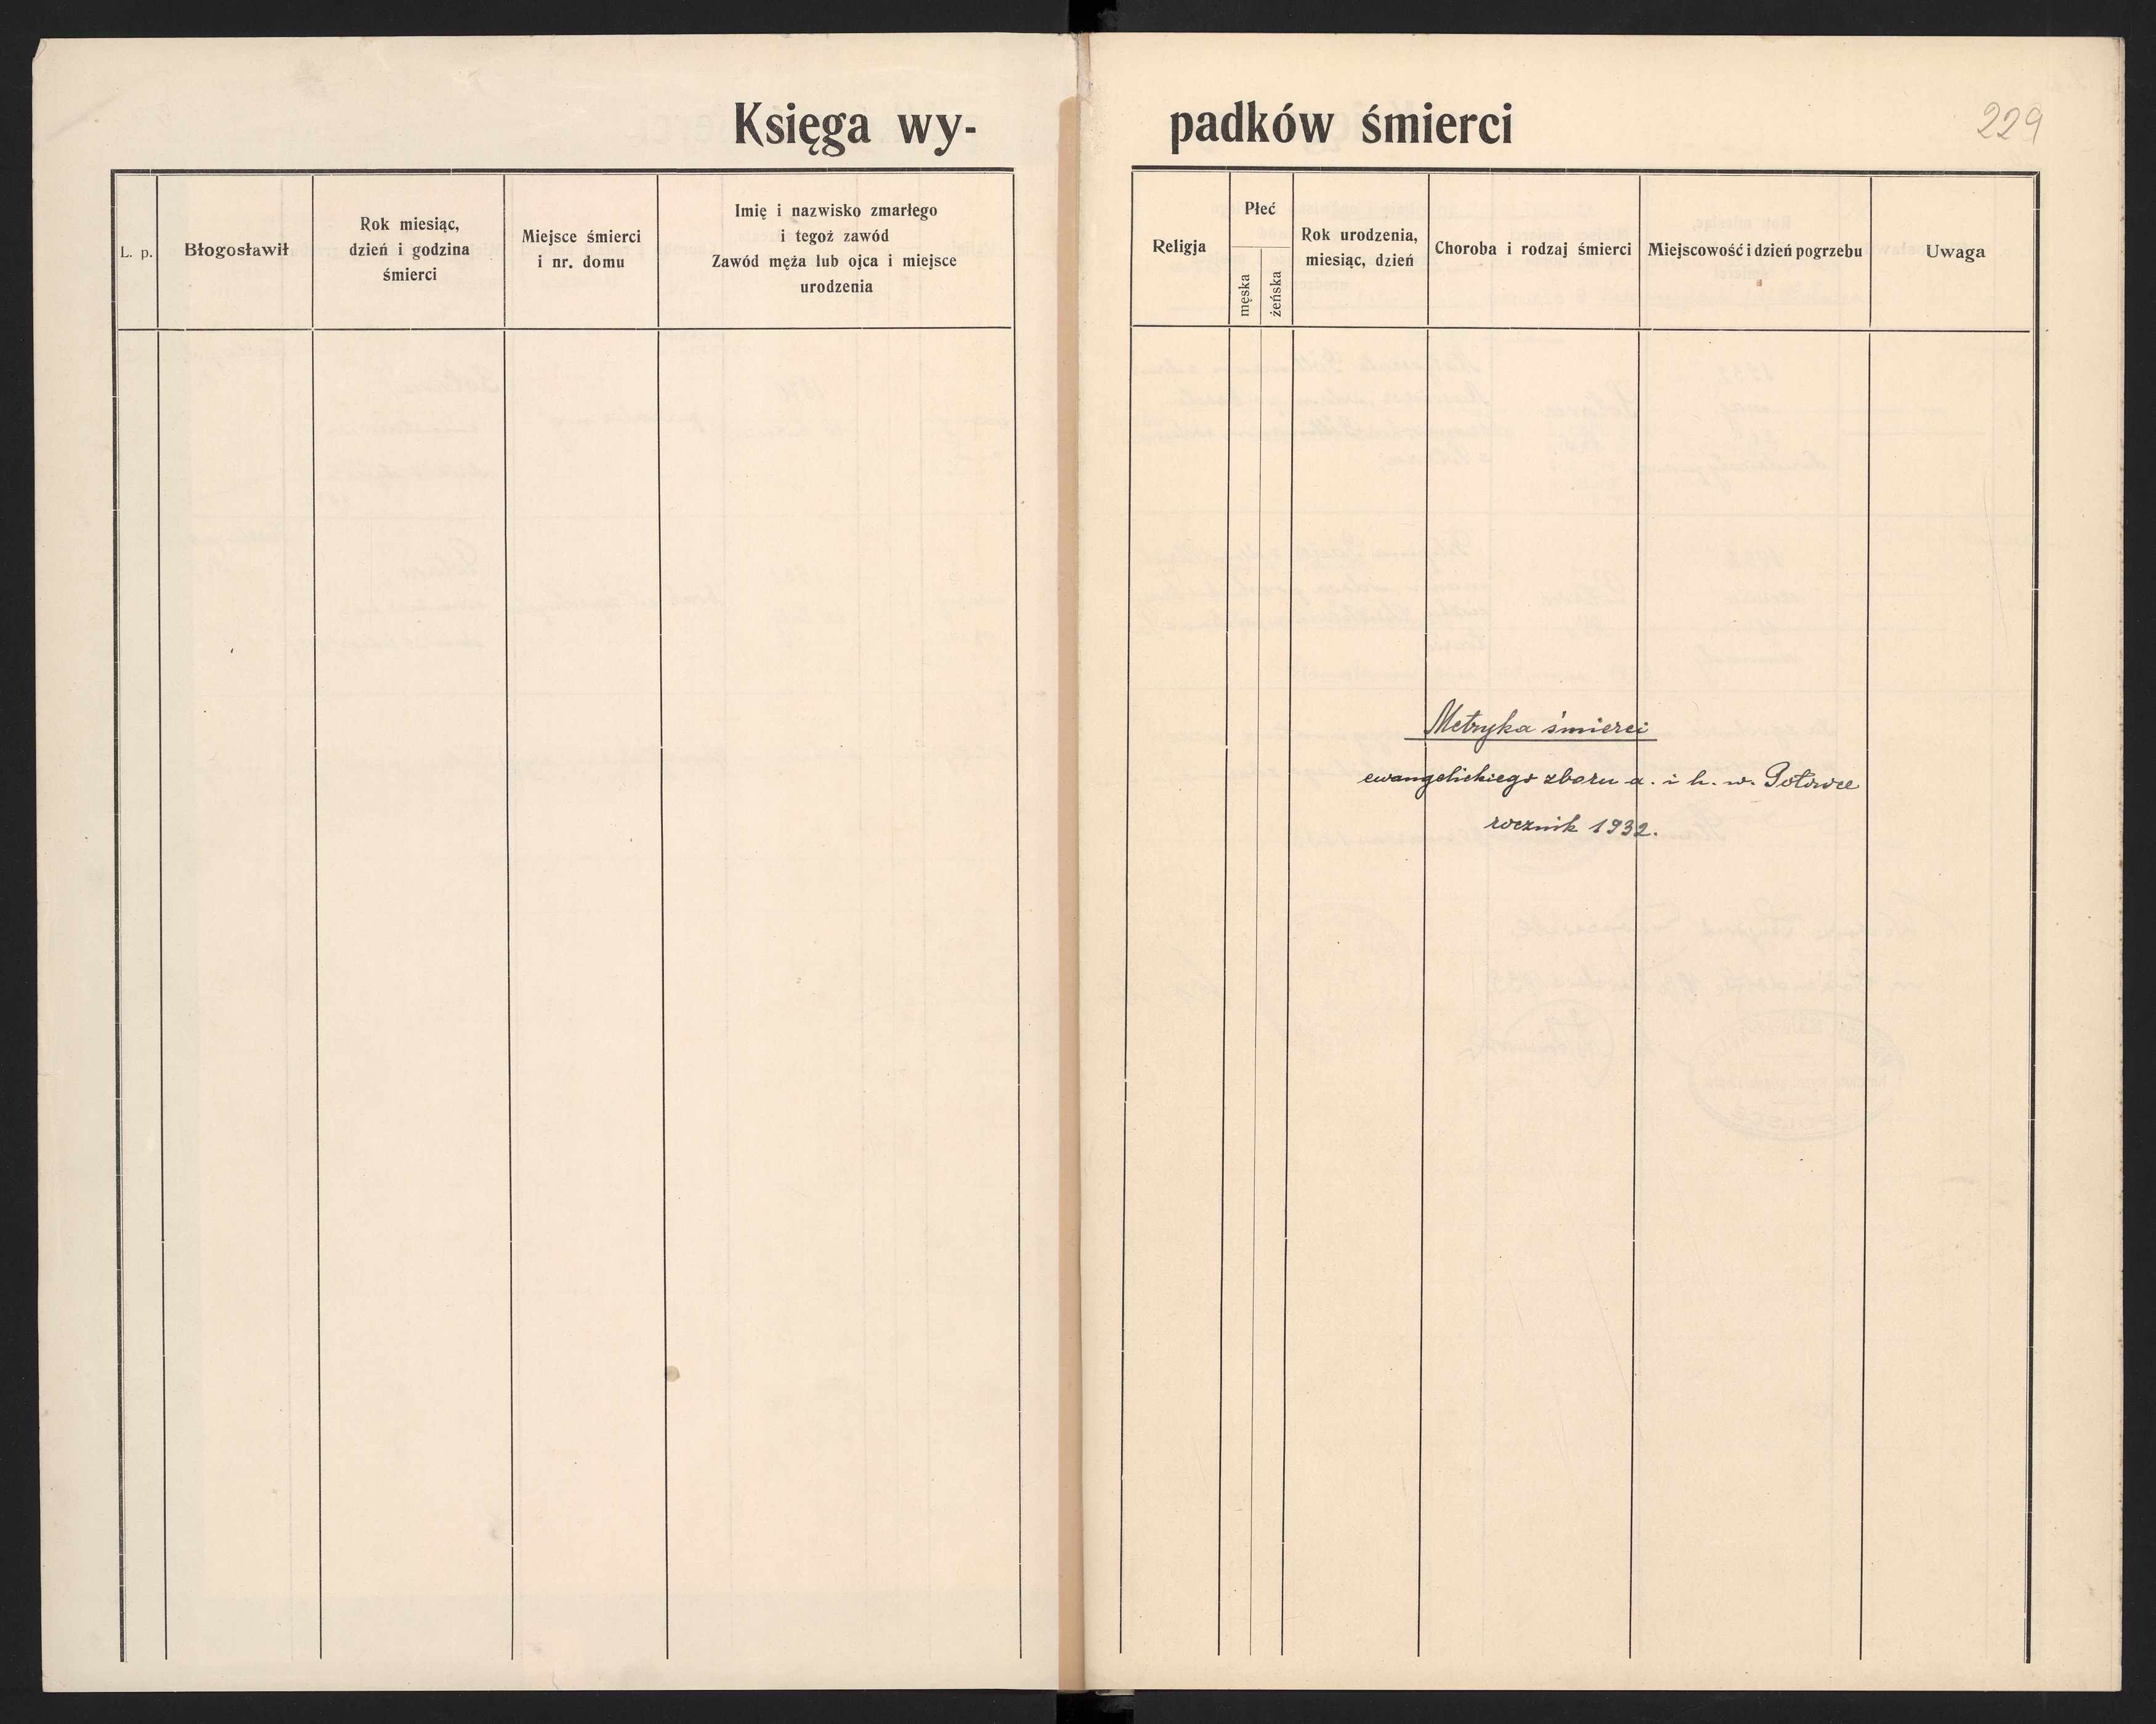 Księga wy-
padków śmierci
229
L. p.
Błogosławił
Rok miesiąc,
dzień i godzina
śmierci
Miejsce śmierci
i nr. domu
Imię i nazwisko zmarłego
i tegoż zawód
Zawód męża lub ojca i miejsce
urodzenia
Religja
Płeć
męska
żeńska
Rok urodzenia,
miesiąc, dzień
Choroba i rodzaj śmierci
Miejscowość i dzień pogrzebu
Uwaga
Metryka śmierci
ewangelickiego zboru a. i h. w.
rocznik 1932.